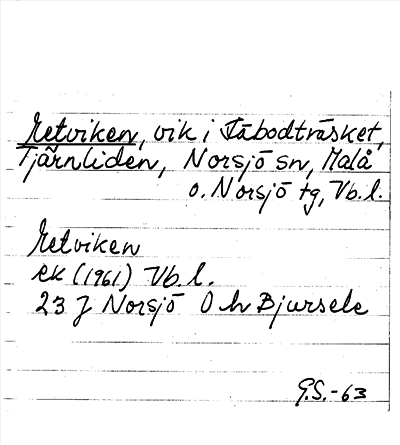 Metviken, vik i Fäbodträsket,
Tjärnliden, Norsjö sn, Malå
o. Norsjö tg, Vb. l.
Metviken
ek (1961) Vb. l.
23 J Norsjö O h Bjursele
G.S. -63